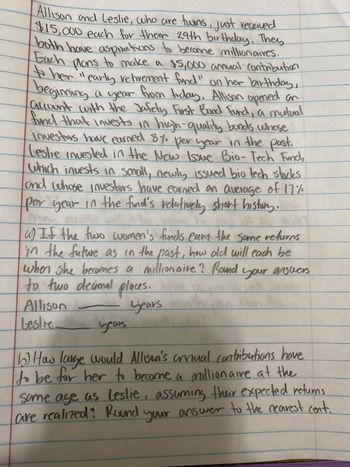 Allison and Leslie, who are twins, just received
$15,000 each for their 29th birthday. They
both have aspirations to become millionaires.
Each plans to make a $5,000 annual contribution
to her "early retirement fund" on her birthday,
beginning a year from today. Allison opened an
account with the Safety First Bond Fund, a mutual
fund that invests in high-quality bonds whose
investors have earned 8% per year in the past.
Leslie invested in the New Issue Bio-Tech Fund,
which invests in small, newly issued bio tech stocks
and whose investors have earned an average of 17%
per year in the fund's relatively short history.
a) If the two women's funds earn the same returns
in the future as in the past, how old will each be
when she becomes a millionaire? Round your answers
to two decimal places.
Allison ____ years
Leslie ____ years
b) How large would Allison's annual contributions have
to be for her to become a millionaire at the
same age as Leslie, assuming their expected returns
are realized? Round your answer to the nearest cent.